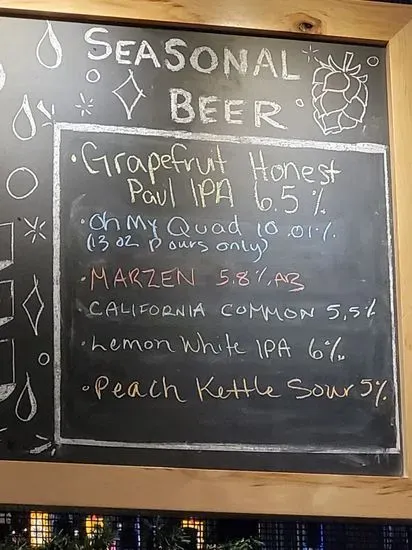 SEASONAL
BEER
• Grapefruit Honest
Paul IPA 6.5%
• Oh My Quad 10.01%
(13 oz pours only)
• MARZEN 5.8% AB
• CALIFORNIA COMMON 5.5%
• Lemon White IPA 6%
• Peach Kettle Sour 5%